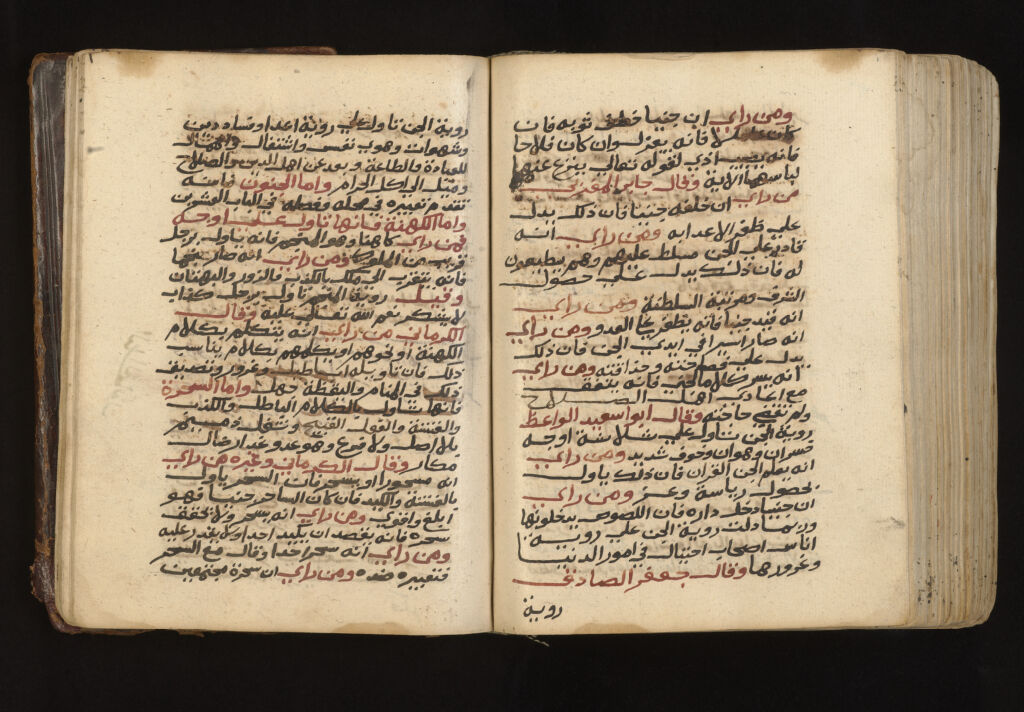 ومن راي ان جنيا خطف ثوبه فان
كان عاملا فانه يعزل وان كان فلاحا
فانه يصيب اذي لقوله تعالي ينزع عنهما
لباسهما الاية وقال جابر المغربي
من راي ان خلفه جنيا فان ذلك يدل
علي ظفر الاعدا به ومن راي انه
قادر علي الجن مسلط عليهم وهم يطيعون
له فان ذلك يدل علي حصول
الشرف ومرتبة السلطنة ومن راي
انه قيد جنيا فانه يظفر علي العدو ومن راي
انه صار اسيرا في ايدي الجن فان ذلك
يدل علي فضيحته وحذاقته ومن راي
انه يسر كلاما لجني فانه يتفق
مع اعادي اهل الصلاح
ولم تقضي حاجته وقال ابو اسعيد الواعظ
روية الجن تتاول علي ثلاثة اوجه
خسران وهوان وخوف شديد ومن راي
انه يعلم الجن القران فان ذلك ياول
بحصول رياسة وعز ومن راي
ان جنيا دخل داره فان اللصوص يدخلونها
وربما دلت روية الجن علي روية
اناس اصحاب احتيال في امور الدنيا
وغرورها وقال جعفر الصادق
روية
روية الجن تاول علي روية اعدا وفساد دين
وشهوات وهوي نفس واشتغال واهمال
للعبادة والطاعة وبعد عن اهل الدين والصلاح
وميل الي اكل الحرام واما الجنون فانه
تقدم تعبيره في محله وفصله في الباب العشرين
واما الكهنة فانها تاول علي اوجه
فمن راي كاهنا وهو المنجم فانه ياول برجل
قريب من الملوك ومن راي انه صار منجما
فانه يتقرب الي ملك بالكذب والزور والبهتان
وقيل روية المنجم تاول برجل كذاب
لا يتذكر نعم الله تعالي عليه وقال
الكرماني من راي انه يتكلم بكلام
الكهنة او نحوهم او يكلمهم بكلام يناسب
ذلك فان تاويله اباطيل وغرور وتصديق
ذلك في المنام واليقظة جهل واما السحرة
فانها تتاول بالكلام الباطل والكذب
والفتنة والقول القبيح وشغل
بلا اصل ولا فرع وهو عدو غدار ضال
مكار وقال الكرماني وغيره من راي
انه مسحورا او يسحر فان السحر ياول
بالفتنة والكيد فان كان الساحر جنيا فهو
ابلغ واقوي ومن راي انه يسحر ولا تحقق
سحره فانه يقصد ان يكيد احدا ولا يقدر عليه
ومن راي انه سحر احدا وقال مع السحر
فتعبيره ضده ومن راي ان سحرة مجتمعين